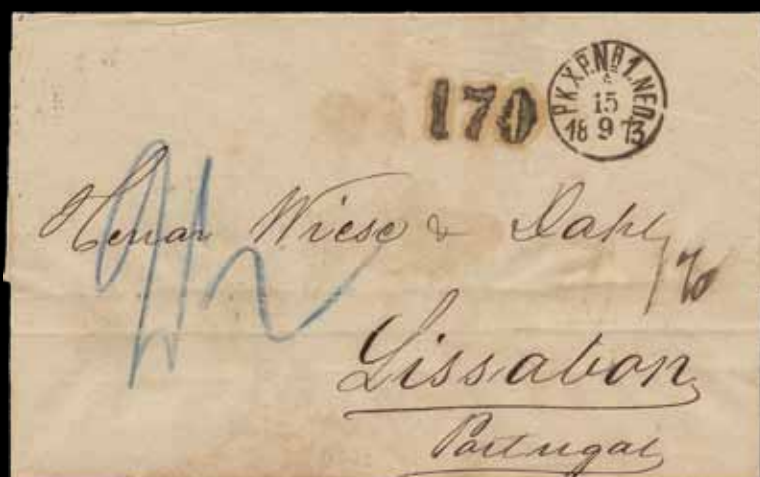 170
P.K.X.P. No 1. NED.
A
15
18 9 73
Herrar Wiese & Dahl
Lissabon
Portugal